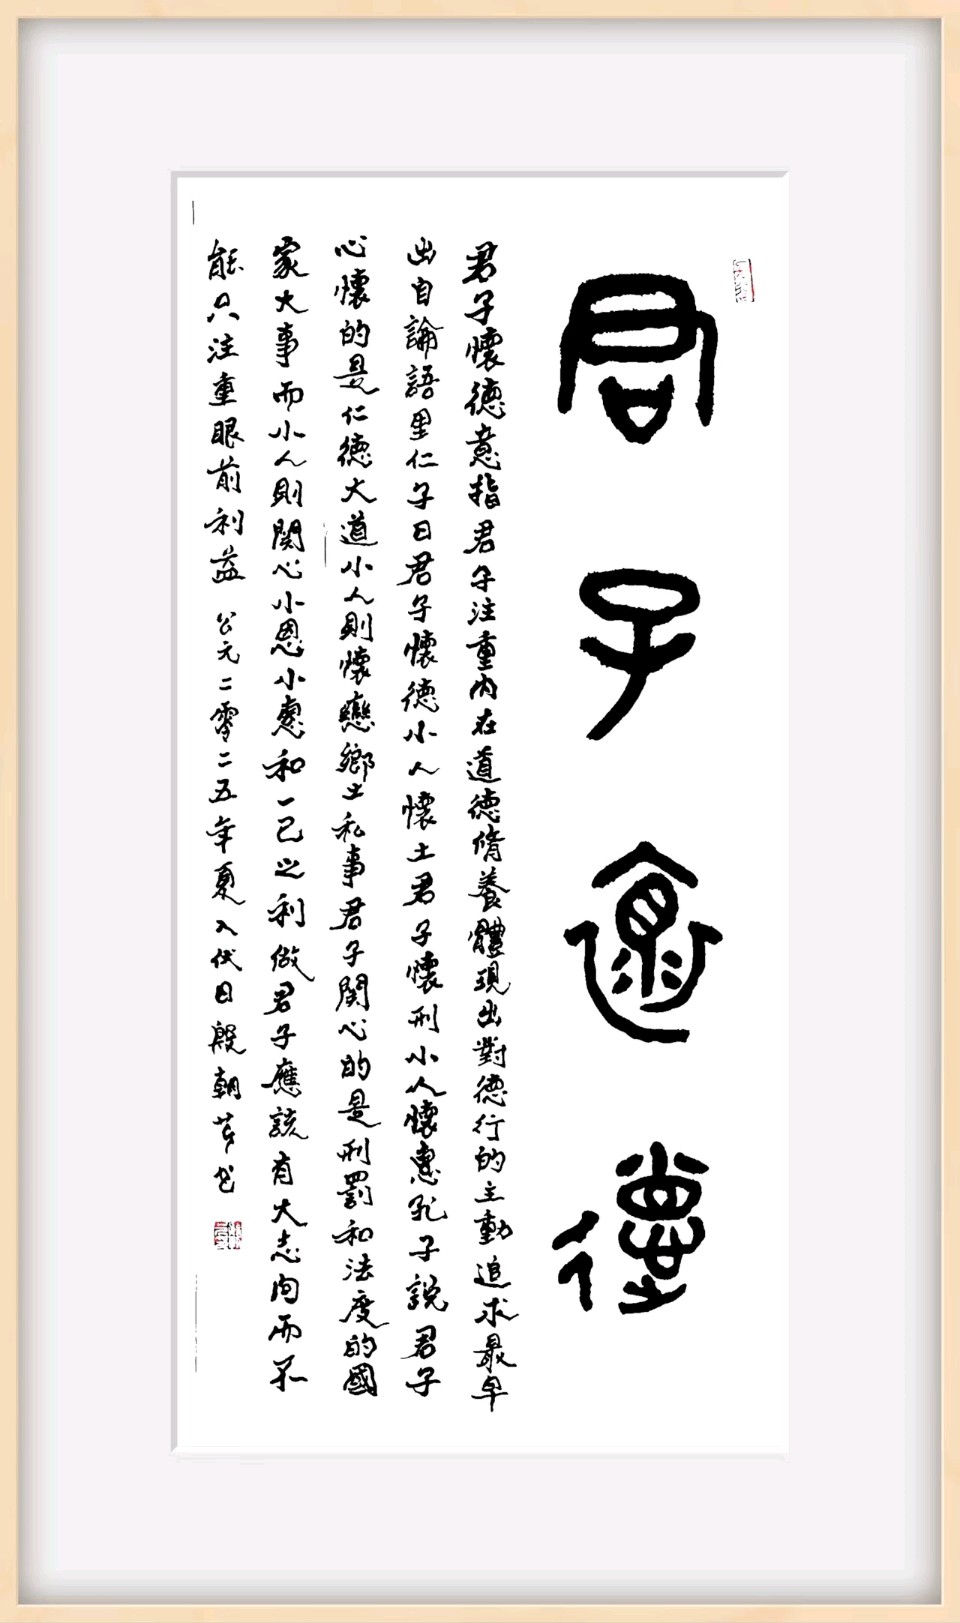 君子懷德
君子懷德意指君子注重內在道德脩養體現出對德行的主動追求最早
出自論語里仁子曰君子懷德小人懷土君子懷刑小人懷惠孔子說君子
心懷的是仁德大道小人則懷戀鄉土私事君子関心的是刑罰和法度的國
家大事而小人則関心小恩小惠和一己之利做君子應該有大志向而不
能只注重眼前利益 公元二零二五年夏入伏日殷朝 书